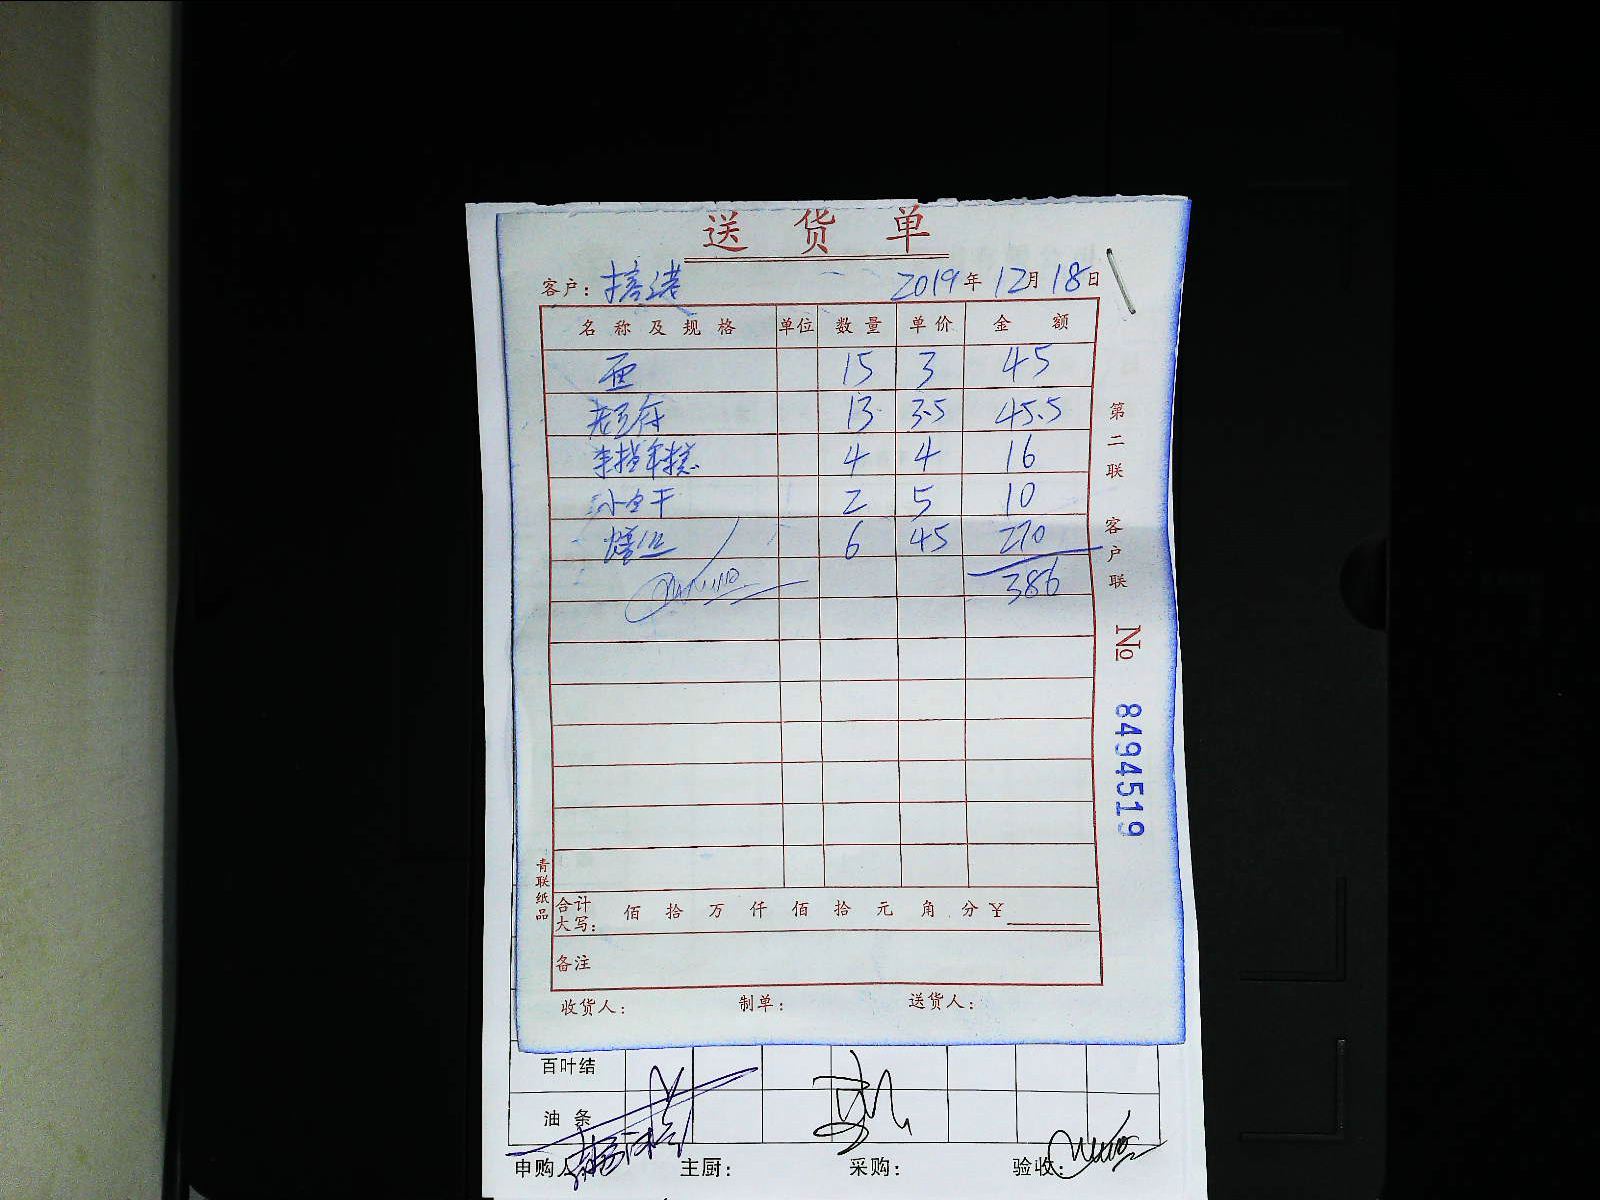 送货单
客户： 2019年12月18日
名称及规格 单位 数量 单价 金额
15 3 45
13 3.5 45.5
4 4 16
2 5 10
6 45 270
386
第二联 客户联
№ 8494519
青联纸品
合计大写： 佰 拾 万 仟 佰 拾 元 角 分 ¥
备注
收货人： 制单： 送货人：
百叶结
油条
申购人 主厨： 采购： 验收：